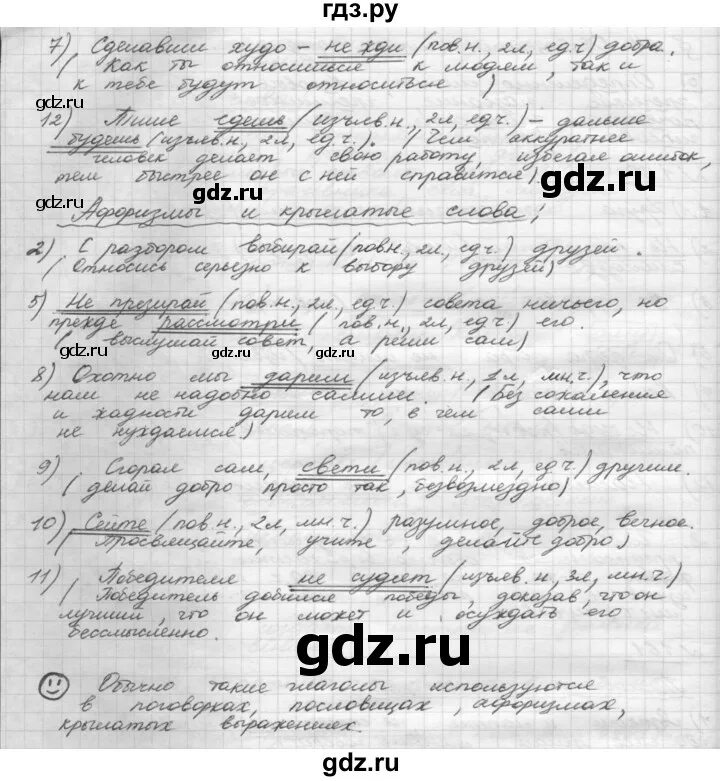 гдз.ру
7) Сделавши худо – не жди (пов.н., 2л, ед.ч) добра.
( Как ты относишься к людям, так и
к тебе будут относиться )
12) Тише едешь (изъяв.н., 2л, ед.ч.) – дальше
будешь (изъяв.н, 2л, ед.ч.). ( Чем аккуратнее
человек делает свою работу, избегая ошибок,
тем быстрее он с ней справится)
Афоризмы и крылатые слова:
2) С разбором выбирай (пов.н., 2л, ед.ч.) друзей.
( Относись серьезно к выбору друзей)
5) Не презирай (пов.н., 2л, ед.ч) совета ничьего, но
прежде рассмотри ( пов.н., 2л, ед.ч.) его.
( выслушай совет, а реши сам)
8) Охотно мы дарим (изъяв.н., 1л, мн.ч.), что
нам не надобно самим. ( Без сожаления
и жадности дарим то, в чем сами
не нуждаемся)
9) Сгорая сам, свети (пов.н., 2л, ед.ч.) другим.
( делай добро просто так, безвозмездно)
10) Сейте (пов.н., 2л, мн.ч.) разумное, доброе, вечное.
( Просвящайте, учите, делайте добро)
11) Победителя не судят (изъяв.н, 3л, мн.ч.)
( Победитель добился победы, доказав, что он
лучший, что он может и осуждать его
бессмысленно.
Обычно такие глаголы используются
в поговорках, пословицах, афоризмах,
крылатых выражениях.
gdz.ru
gdz.ru
gdz.ru
gdz.ru
gdz.ru
gdz.ru
gdz.ru
gdz.ru
gdz.ru
gdz.ru
gdz.ru
gdz.ru
gdz.ru